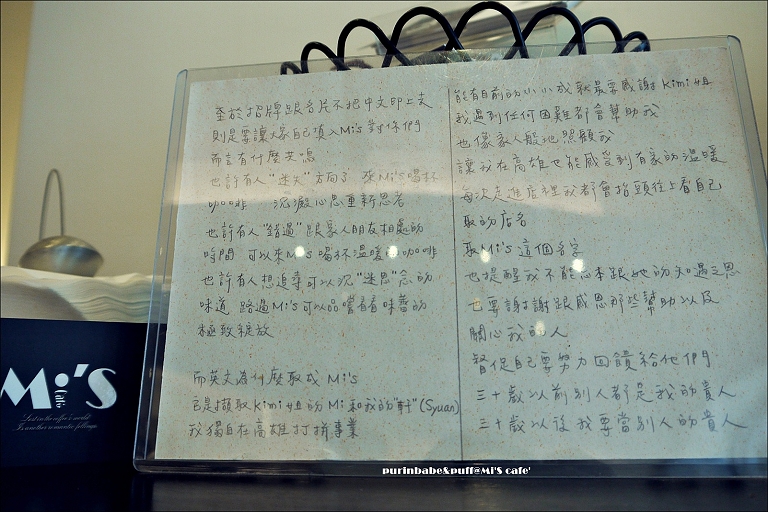 至於招牌跟名片不把中文印上去
則是要讓大家自己填入Mi's對你們
而言有什麼共鳴
也許有人"迷失"方向了 來Mi's喝杯
咖啡 沉澱心思重新思考
也許有人"錯過"跟家人朋友相處的
時間 可以來Mi's喝杯溫暖的咖啡
也許有人想追尋可以沉"迷思"念的
味道 路過Mi's可以品嚐看看味蕾的
極致綻放
而英文為什麼取成 Mi's
它是擷取Kimi姐的Mi和我的"軒"(Syuan)
我獨自在高雄打拼事業
能有目前的小小成就最要感謝Kimi姐
我遇到任何困難都會幫助我
也像家人般地照顧我
讓我在高雄也能感受到有家的溫暖
每次走進店裡我都會抬頭往上看自己
取的店名
取Mi's這個名字
也提醒我不能忘本跟她的知遇之恩
也要謝謝跟感恩那些幫助以及
關心我的人
督促自己要努力回饋給他們
三十歲以前別人都是我的貴人
三十歲以後我要當別人的貴人
Mi's
cafe
Is another romantic feelings
purinbabe&puff@Mi'S cafe'